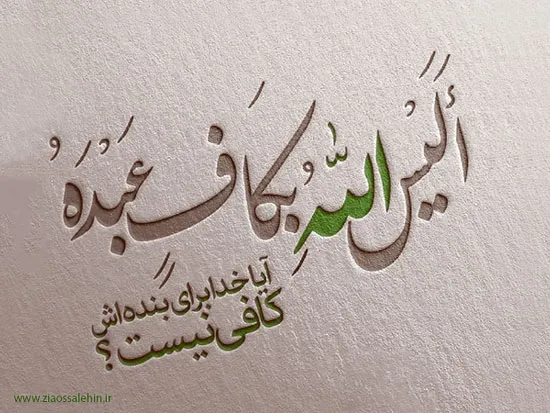 أَلَيْسَ اللّٰهُ بِكَافٍ عَبْدَهُ
آیا خدا برای بنده‌اش
کافی نیست؟
www.ziaossalehin.ir